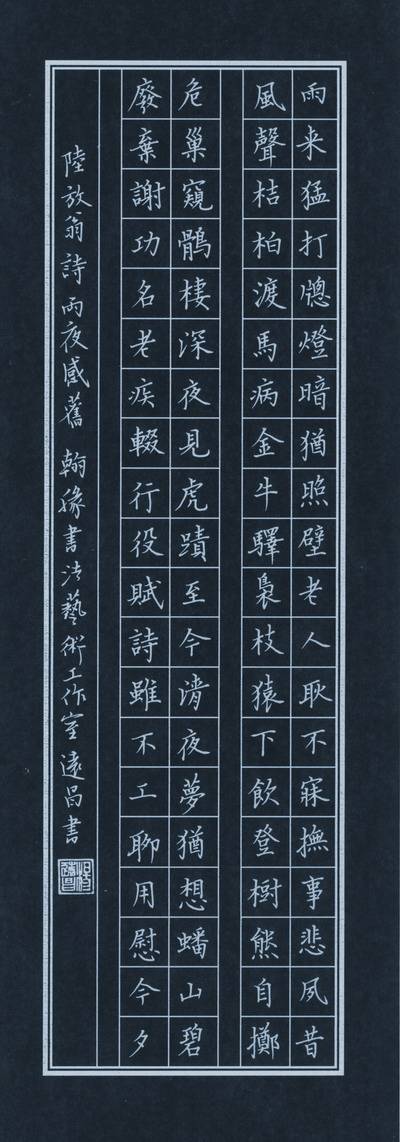 雨来猛打牕燈暗猶照壁老人耿不寐撫事悲夙昔
風聲桔柏渡馬病金牛驛裊枝猿下飲登樹熊自擲
危巢窺鶻棲深夜見虎蹟至今清夜夢猶想蟠山碧
廢棄謝功名老疾輟行役賦詩雖不工聊用慰今夕
陸放翁詩 雨夜感舊 翰緣書法藝術工作室 遠昌書